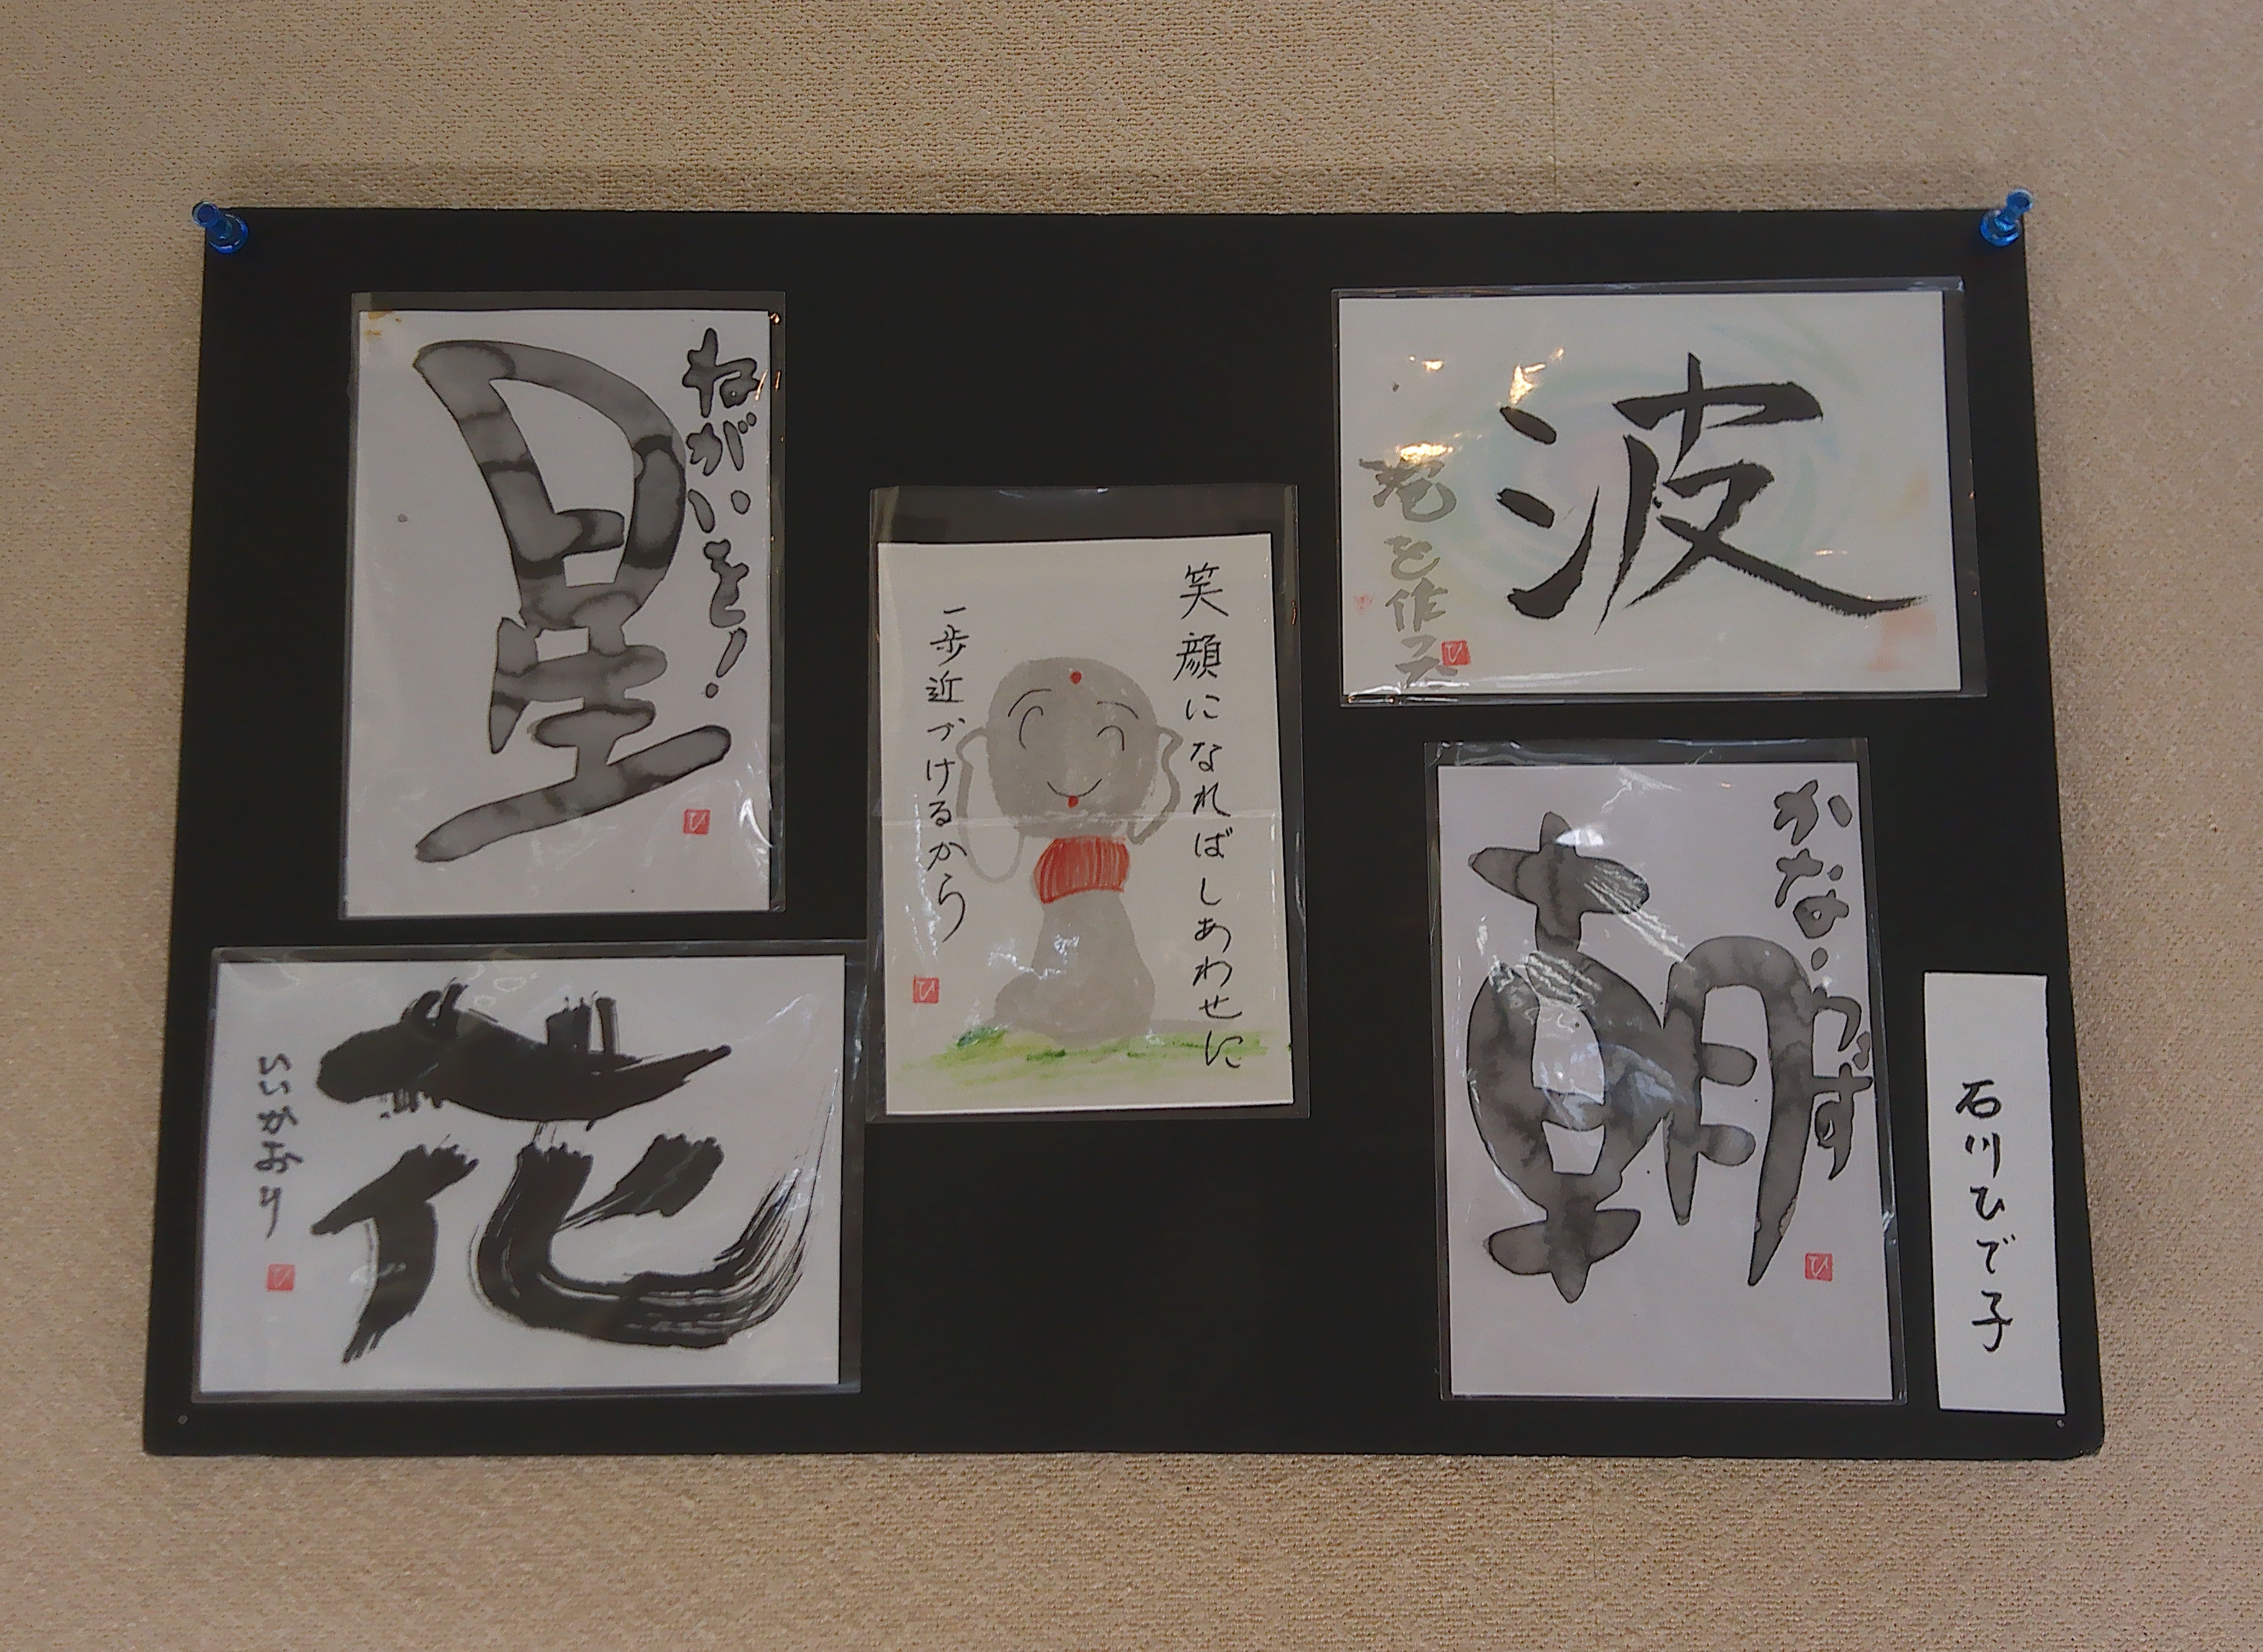 ねがいを!
星
ひ
花
いいかおり
ひ
笑顔になればしあわせに
一歩近づけるから
ひ
波
ひ
かならず
朝
ひ
石川ひで子